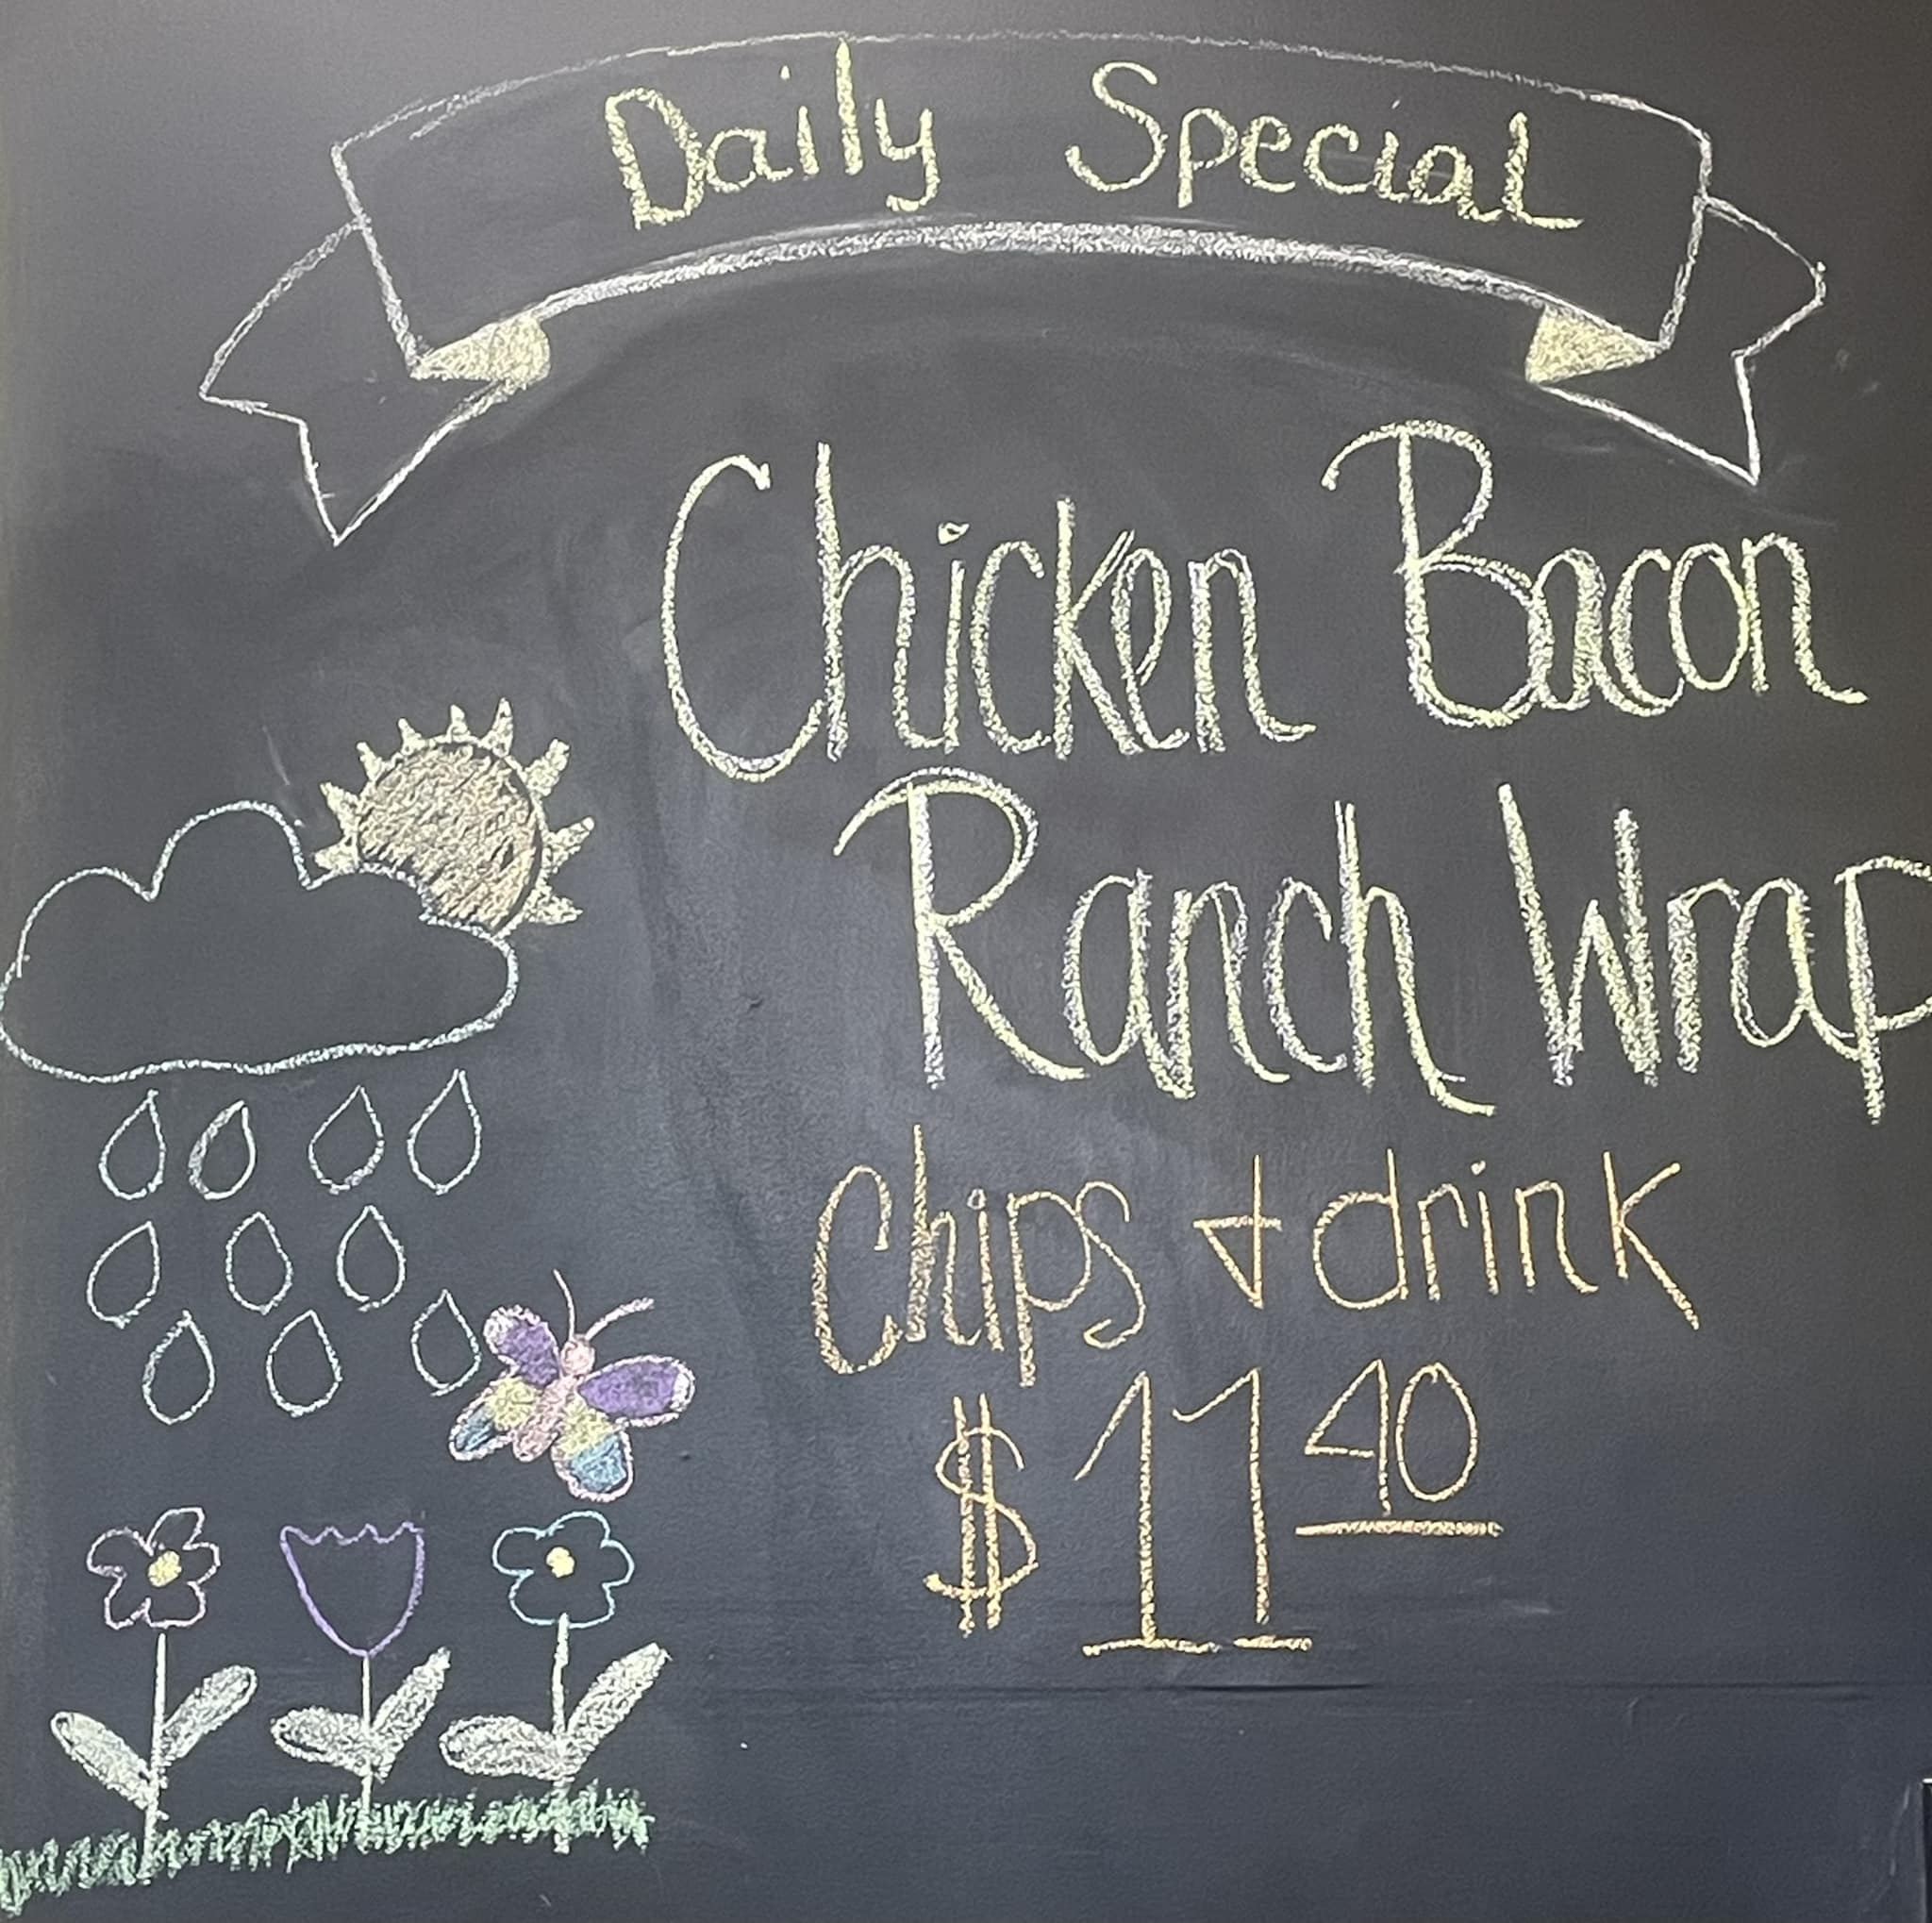 Daily Special
Chicken Bacon
Ranch Wrap
Chips + drink
$11 40